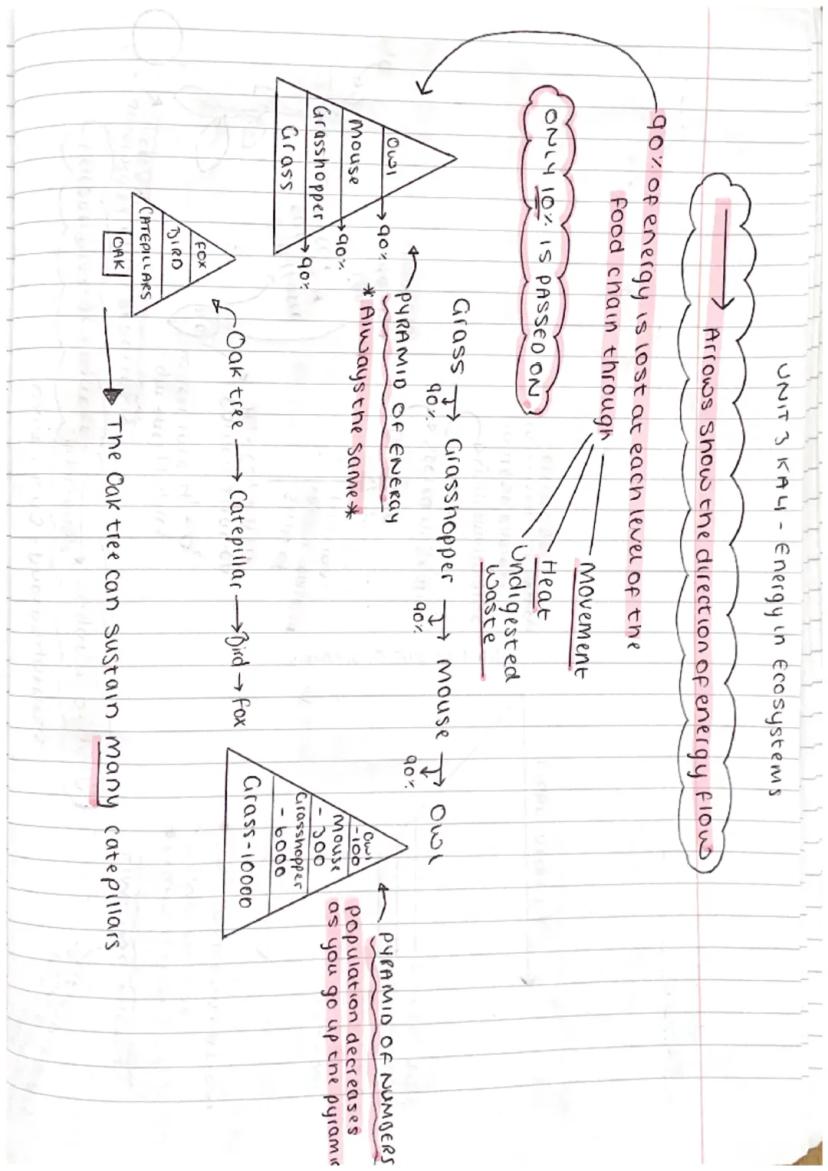 UNIT 3 KA4 - Energy in Ecosystems
→ Arrows show the direction of energy flow
90% of energy is lost at each level of the
food chain through
Movement
Heat
Undigested
waste
ONLY 10% IS PASSED ON
Grass → Grasshopper → Mouse → Owl
90% 90% 90%
Owl → 90%
Mouse → 90%
Grasshopper → 90%
Grass
PYRAMID OF ENERGY
*Always the same*
Owl
-100
Mouse
-300
Grasshopper
-6000
Grass-10000
PYRAMID OF NUMBERS
population decreases
as you go up the
Oak tree → Catepillar → Bird → Fox
FOX
BIRD
CATEPILLARS
OAK
The Oak tree can sustain many catepillars